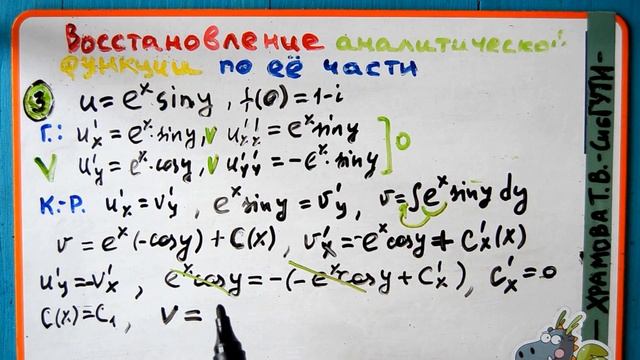 Восстановление аналитической
функции по её части
③ u = eˣ·siny, f(0) = 1-i
Г.: u'ₓ = eˣ·siny, v u''ₓₓ = eˣsiny ] 0
v u'y = eˣ·cosy, v u''yy = -eˣ·siny
К.-Р. u'ₓ = v'y, eˣsiny = v'y, v = ∫eˣsiny dy
v = eˣ(-cosy) + C(x), v'ₓ = -eˣcosy + C'ₓ(x)
u'y = -v'ₓ, eˣcosy = -(-eˣcosy + C'ₓ), C'ₓ = 0
C(x) = C₁, v =
— ХРАМОВА Т.В. - СибГУТИ -